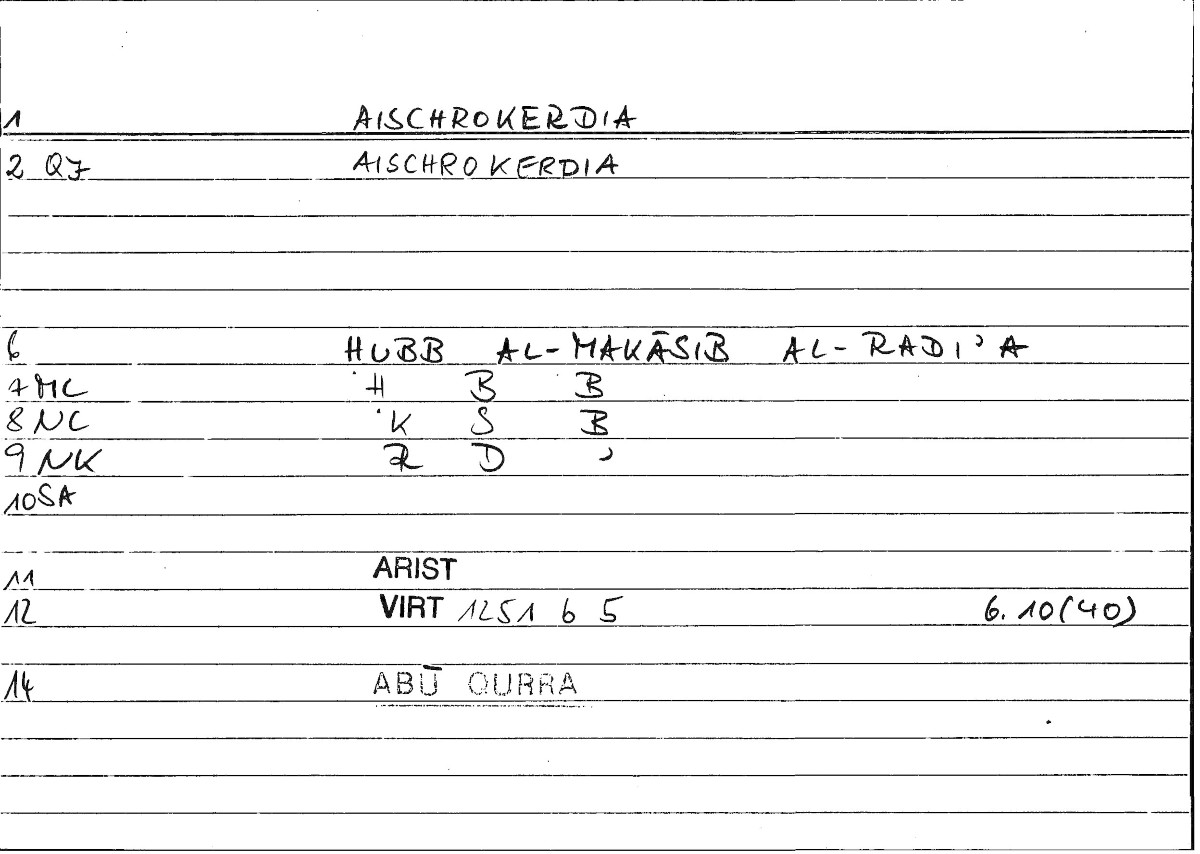 1 AISCHROKERDIA
2 Q7 AISCHROKERDIA
6 HUBB AL-MAKĀSIB AL-RADI'A
7 MC H B B
8 NC K S B
9 NK R D '
10 SA
11 ARIST
12 VIRT 1251 b 5 6.10(40)
14 ABŪ QURRA